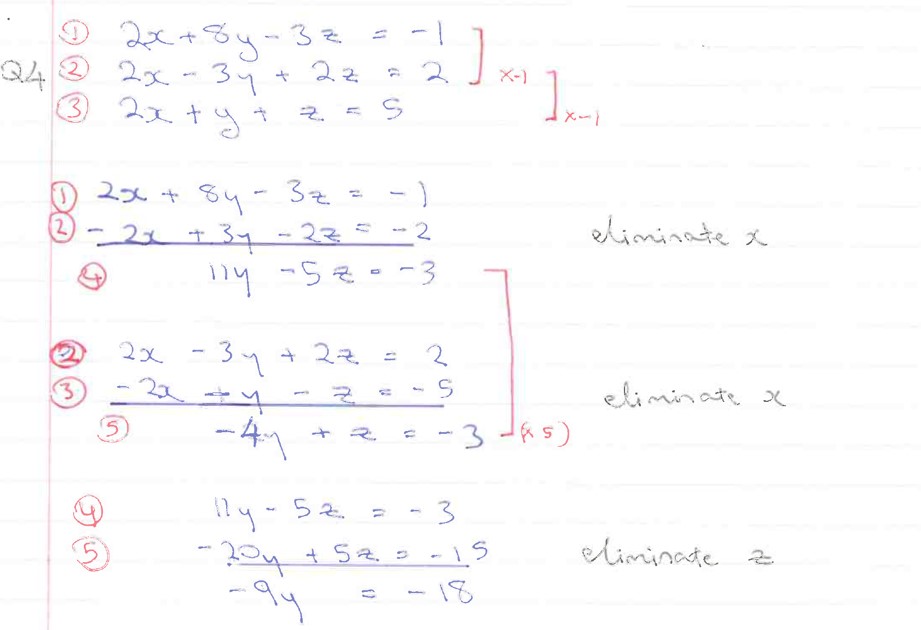 ① 2x + 8y - 3z = -1
Q4 ② 2x - 3y + 2z = 2 x-1
③ 2x + y + z = 5 x-1
① 2x + 8y - 3z = -1
② - 2x + 3y - 2z = -2 eliminate x
④ 11y - 5z = -3
② 2x - 3y + 2z = 2
③ -2x - y - z = -5 eliminate x
⑤ -4y + z = -3 (x5)
④ 11y - 5z = -3
⑤ -20y + 5z = -15 eliminate z
-9y = -18